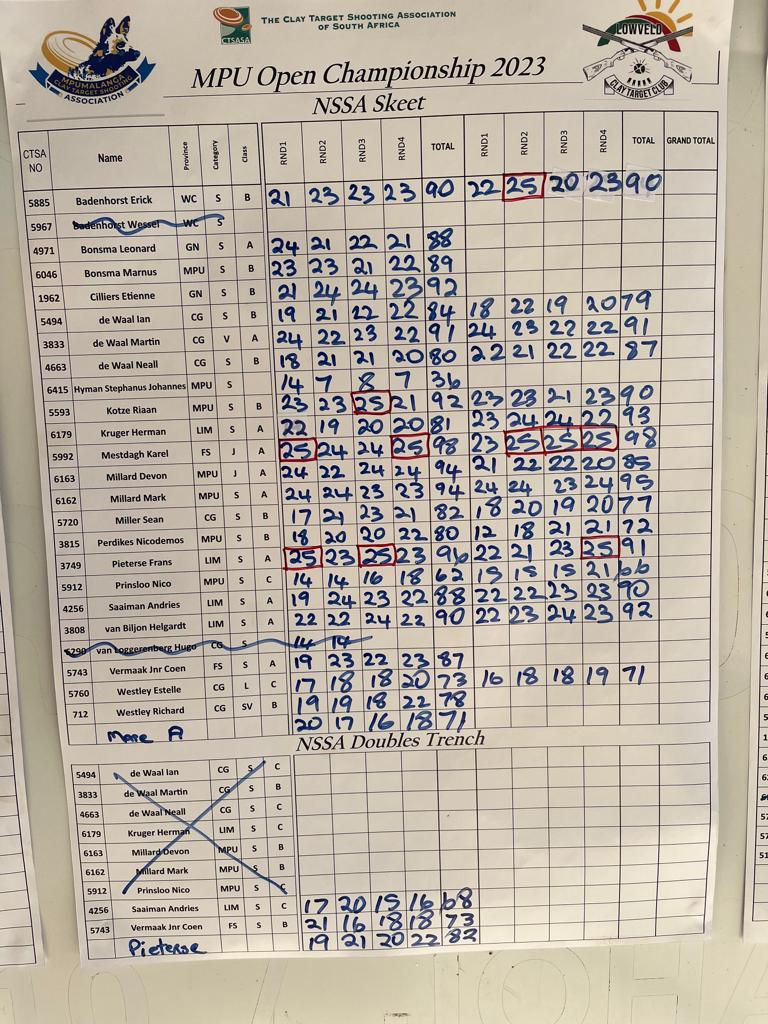 MPUMALANGA
CLAY TARGET SHOOTING
ASSOCIATION
CTSASA
THE CLAY TARGET SHOOTING ASSOCIATION
OF SOUTH AFRICA
LOWVELD
CLAY TARGET CLUB
MPU Open Championship 2023
NSSA Skeet
CTSA NO Name Province Category Class RND1 RND2 RND3 RND4 TOTAL RND1 RND2 RND3 RND4 TOTAL GRAND TOTAL
5885 Badenhorst Erick WC S B 21 23 23 23 90 22 25 20 23 90
5967 Badenhorst Wessel WC S
4971 Bonsma Leonard GN S A 24 21 22 21 88
6046 Bonsma Marnus MPU S B 23 23 21 22 89
1962 Cilliers Etienne GN S B 21 24 24 23 92
5494 de Waal Ian CG S B 19 21 22 22 84 18 22 19 20 79
3833 de Waal Martin CG V A 24 22 23 22 91 24 23 22 22 91
4663 de Waal Neall CG S B 18 21 21 20 80 22 21 22 22 87
6415 Hyman Stephanus Johannes MPU S 14 7 8 7 36
5593 Kotze Riaan MPU S B 23 23 25 21 92 23 23 21 23 90
6179 Kruger Herman LIM S A 22 19 20 20 81 23 24 24 22 93
5992 Mestdagh Karel FS J A 25 24 24 25 98 23 25 25 25 98
6163 Millard Devon MPU J A 24 22 24 24 94 21 22 22 20 85
6162 Millard Mark MPU S A 24 24 23 23 94 24 24 23 24 95
5720 Miller Sean CG S B 17 21 23 21 82 18 20 19 20 77
3815 Perdikes Nicodemos MPU S B 18 20 20 22 80 12 18 21 21 72
3749 Pieterse Frans LIM S A 25 23 25 23 96 22 21 23 25 91
5912 Prinsloo Nico MPU S C 14 14 16 18 62 15 15 15 21 66
4256 Saaiman Andries LIM S A 19 24 23 22 88 22 22 23 23 90
3808 van Biljon Helgardt LIM S A 22 22 24 22 90 22 23 24 23 92
6290 van Loggerenberg Hugo CG S 14 14
5743 Vermaak Jnr Coen FS S A 19 23 22 23 87
5760 Westley Estelle CG L C 17 18 18 20 73 16 18 18 19 71
712 Westley Richard CG SV B 19 19 18 22 78
Marc A 20 17 16 18 71
NSSA Doubles Trench
5494 de Waal Ian CG S C
3833 de Waal Martin CG S B
4663 de Waal Neall CG S C
6179 Kruger Herman LIM S C
6163 Millard Devon MPU S B
6162 Millard Mark MPU S B
5912 Prinsloo Nico MPU S C
4256 Saaiman Andries LIM S C 17 20 15 16 68
5743 Vermaak Jnr Coen FS S B 21 16 18 18 73
Pieterse 19 21 20 22 82